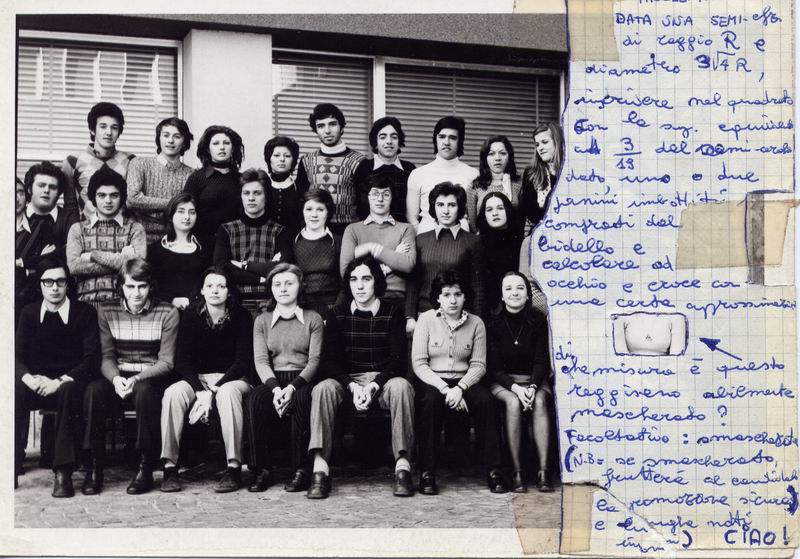 DATA UNA SEMI-cfr
di raggio R e
diametro 3√4 R,
inscrivere nel quadrato
con lo sg. equivalente
a 3/19 del semi-cerchio
dato, uno o due
panini imbottiti
comprati dal
bidello e
calcolare ad
occhio e croce con
una certa approssimazione
di
che misura è questo
reggiseno abilmente
mascherato?
Facoltativo: smascherate
(N.B= se smascherato,
frutterà al candidato
la promozione sicura
e lunghe notti
) CIAO!